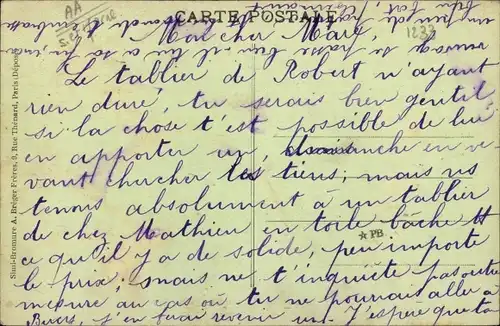 CARTE POSTALE
Mon cher Marc,
Le tablier de Robert n'ayant
rien duré, tu serais bien gentil
si la chose t'est possible de lui
en apporter un, dimanche en ve-
nant chercher les tiens; mais ns
tenons absolument à un tablier
de chez Mathieu en toile bâche tt
ce qu'il y a de solide, peu importe
le prix; mais ne t'inquiète pas outre
mesure au cas où tu ne pourrais aller à
j'en ferai revenir un. J'espère que ta
Simili-Bromure A. Bréger Frères, 9, Rue Thénard, Paris
PB
1233
AA